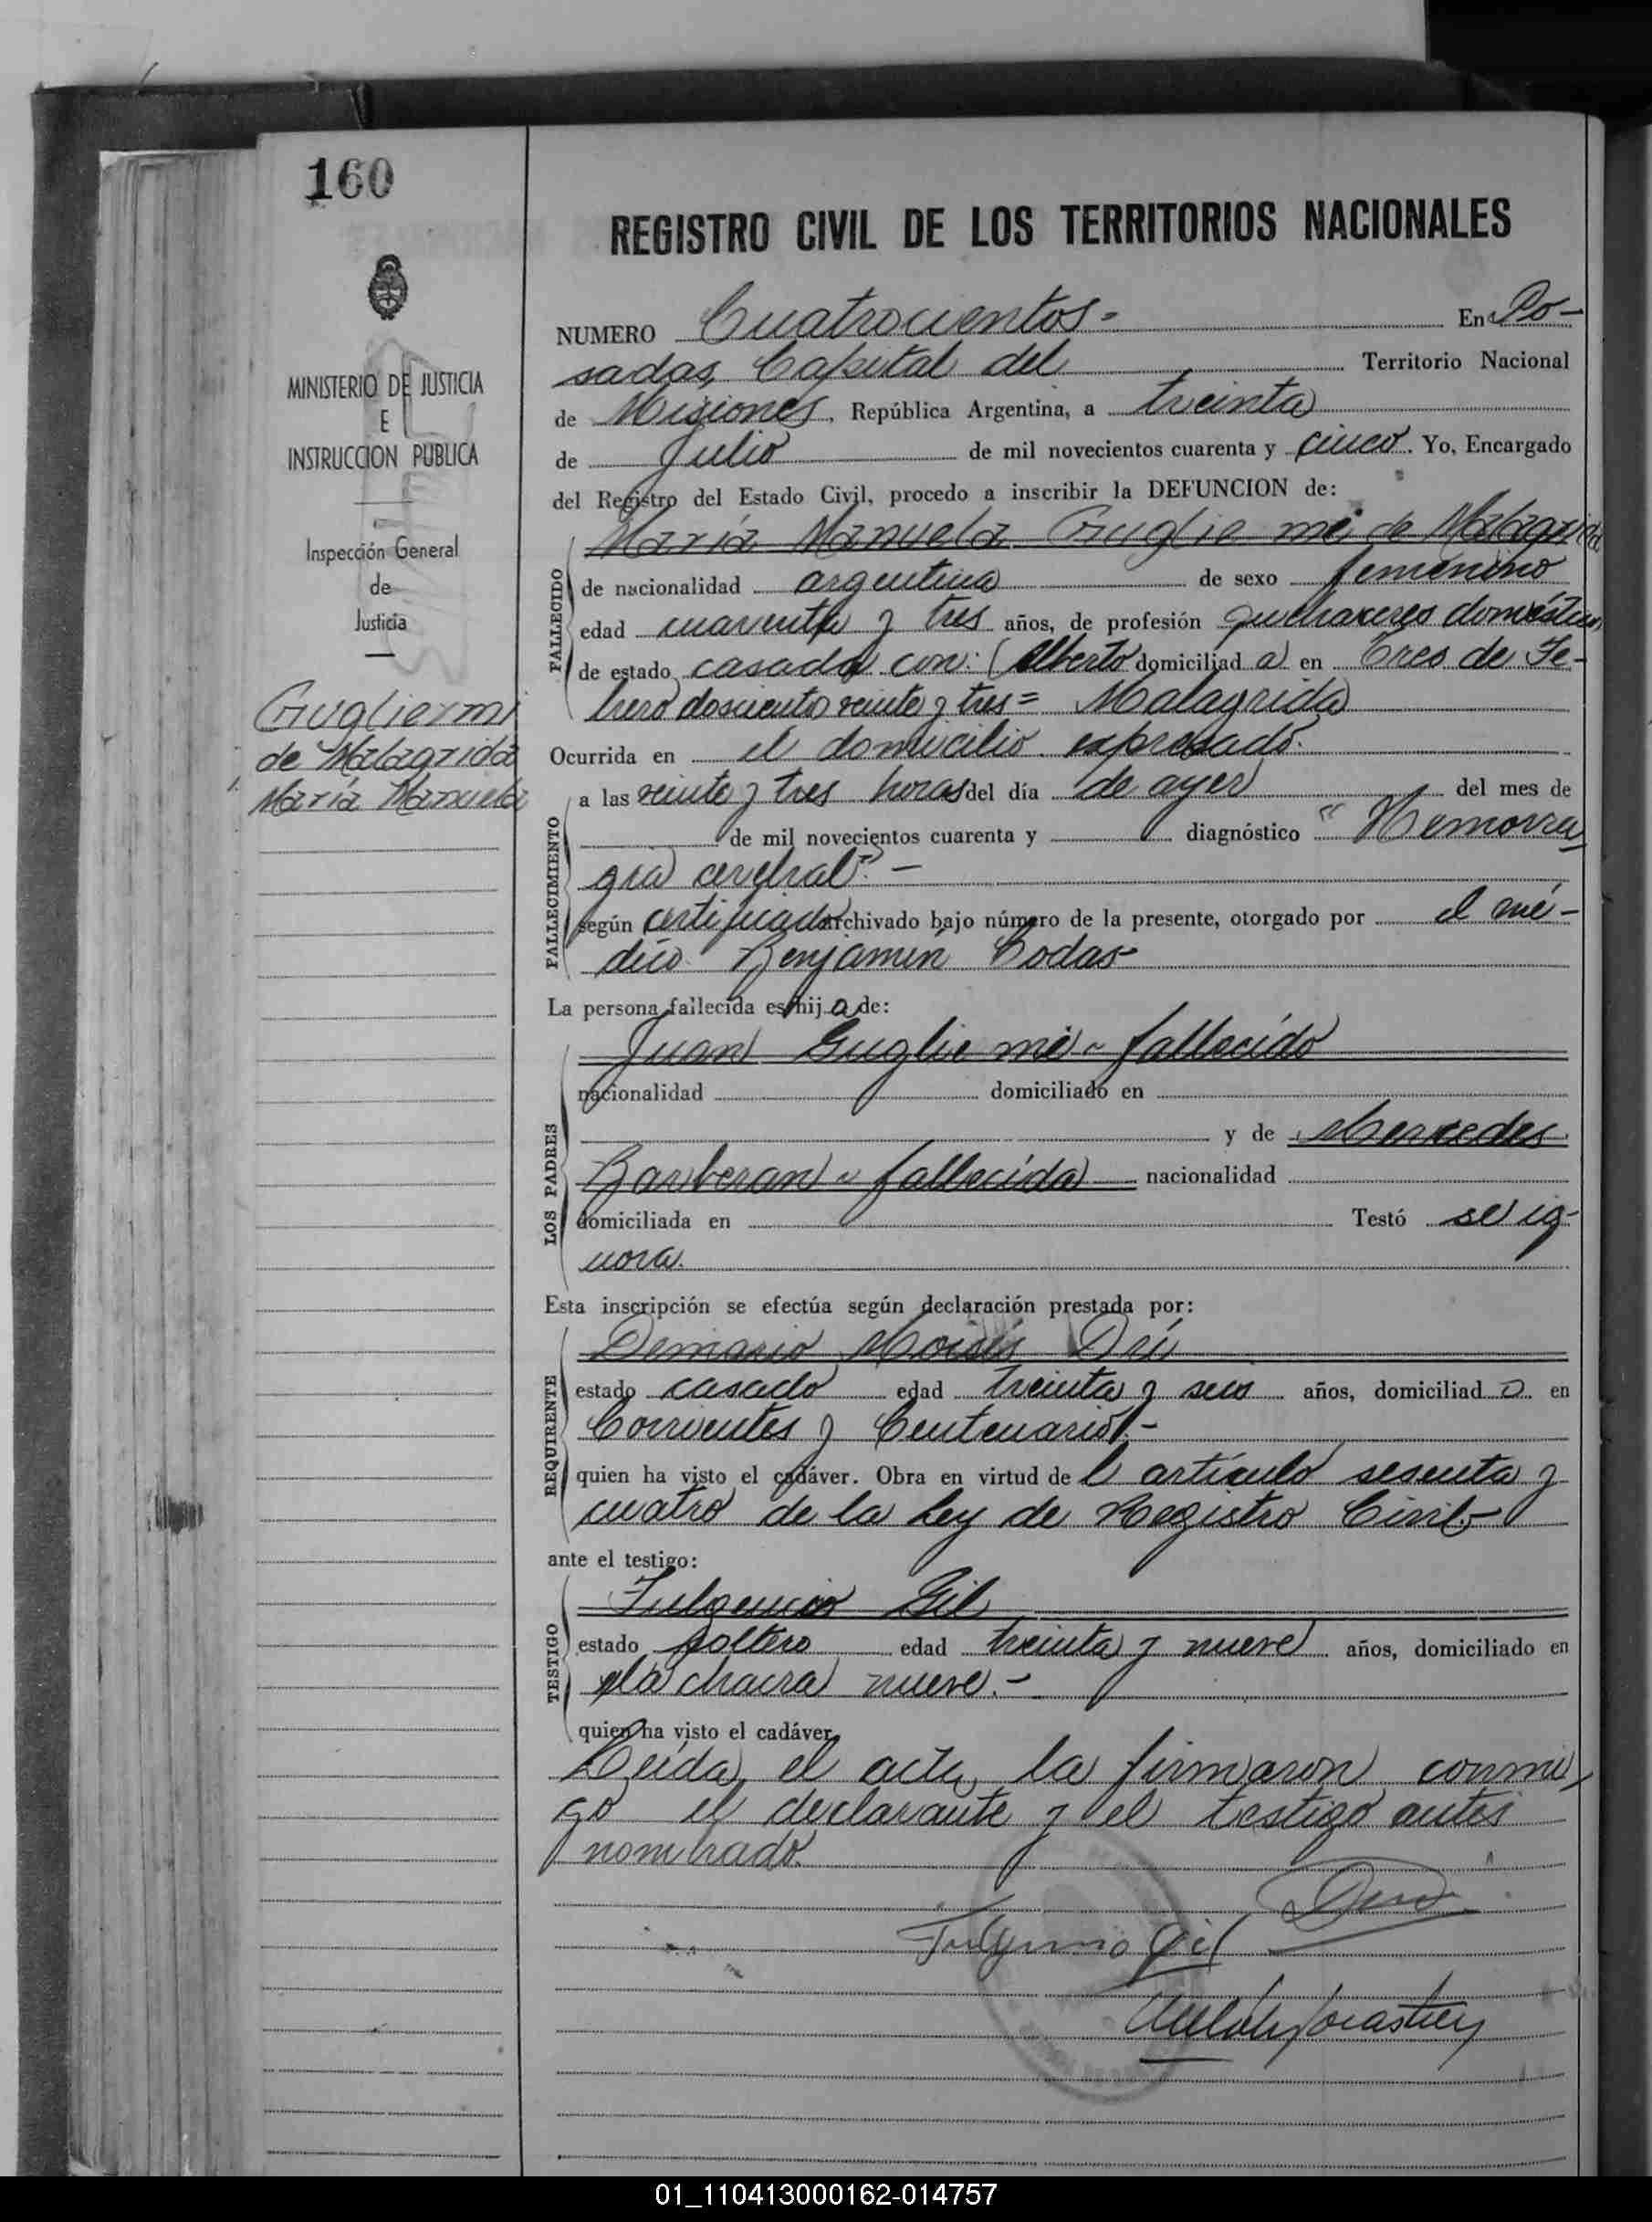 160
REGISTRO CIVIL DE LOS TERRITORIOS NACIONALES
MINISTERIO DE JUSTICIA
E
INSTRUCCION PUBLICA
Inspección General
de
Justicia
Gugliermi
de Malagrida
María Manuela
NUMERO Cuatrocientos.- En Po-
sadas, Capital del Territorio Nacional
de Misiones, República Argentina, a treinta
de Julio de mil novecientos cuarenta y cinco. Yo, Encargado
del Registro del Estado Civil, procedo a inscribir la DEFUNCION de:
María Manuela Guglie mi de Malagrida
FALLECIDO
de nacionalidad argentina de sexo femenino
edad cuarenta y tres años, de profesión quehaceres domésticos
de estado casada con: (Alberto domiciliad a en Tres de Fe-
brero doscientos veinte y tres= Malagrida)
Ocurrida en el domicilio expresado.
FALLECIMIENTO
a las veinte y tres horas del día de ayer del mes de
de mil novecientos cuarenta y diagnóstico "Hemorra
gia cerebral".-
según certificado archivado bajo número de la presente, otorgado por el mé-
dico Benjamín Codas-
La persona fallecida es hij a de:
LOS PADRES
Juan Guglie mi - fallecido
nacionalidad domiciliado en
y de Mercedes
Barberan - fallecida nacionalidad
domiciliada en Testó se ig-
nora.
Esta inscripción se efectúa según declaración prestada por:
REQUIRENTE
Moisés
estado casado edad treinta y seis años, domiciliad o en
Corrientes y Centenario.-
quien ha visto el cadáver. Obra en virtud de l artículo sesenta y
cuatro de la Ley de Registro Civil.-
ante el testigo:
TESTIGO
Fulgencio Gil
estado soltero edad treinta y nueve años, domiciliado en
la chacra nueve.-
quien ha visto el cadáver.
Leída el acta, la firmaron conmi-
go el declarante y el testigo antes
nombrado.
Fulgencio Gil
01_110413000162-014757